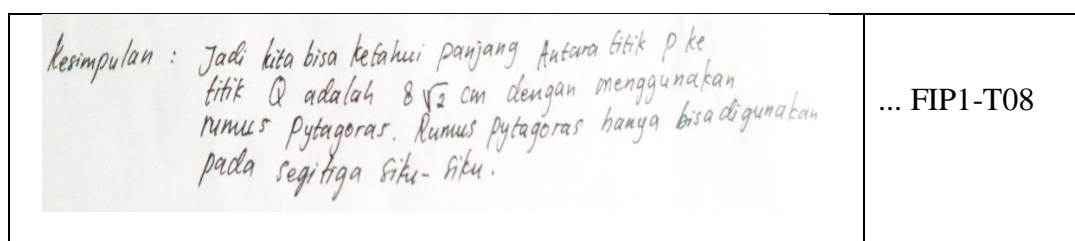 Kesimpulan : Jadi kita bisa ketahui panjang Antara titik P ke
titik Q adalah 8√2 cm dengan menggunakan
rumus Pytagoras. Rumus pytagoras hanya bisa digunakan
pada segitiga siku-siku.
... FIP1-T08